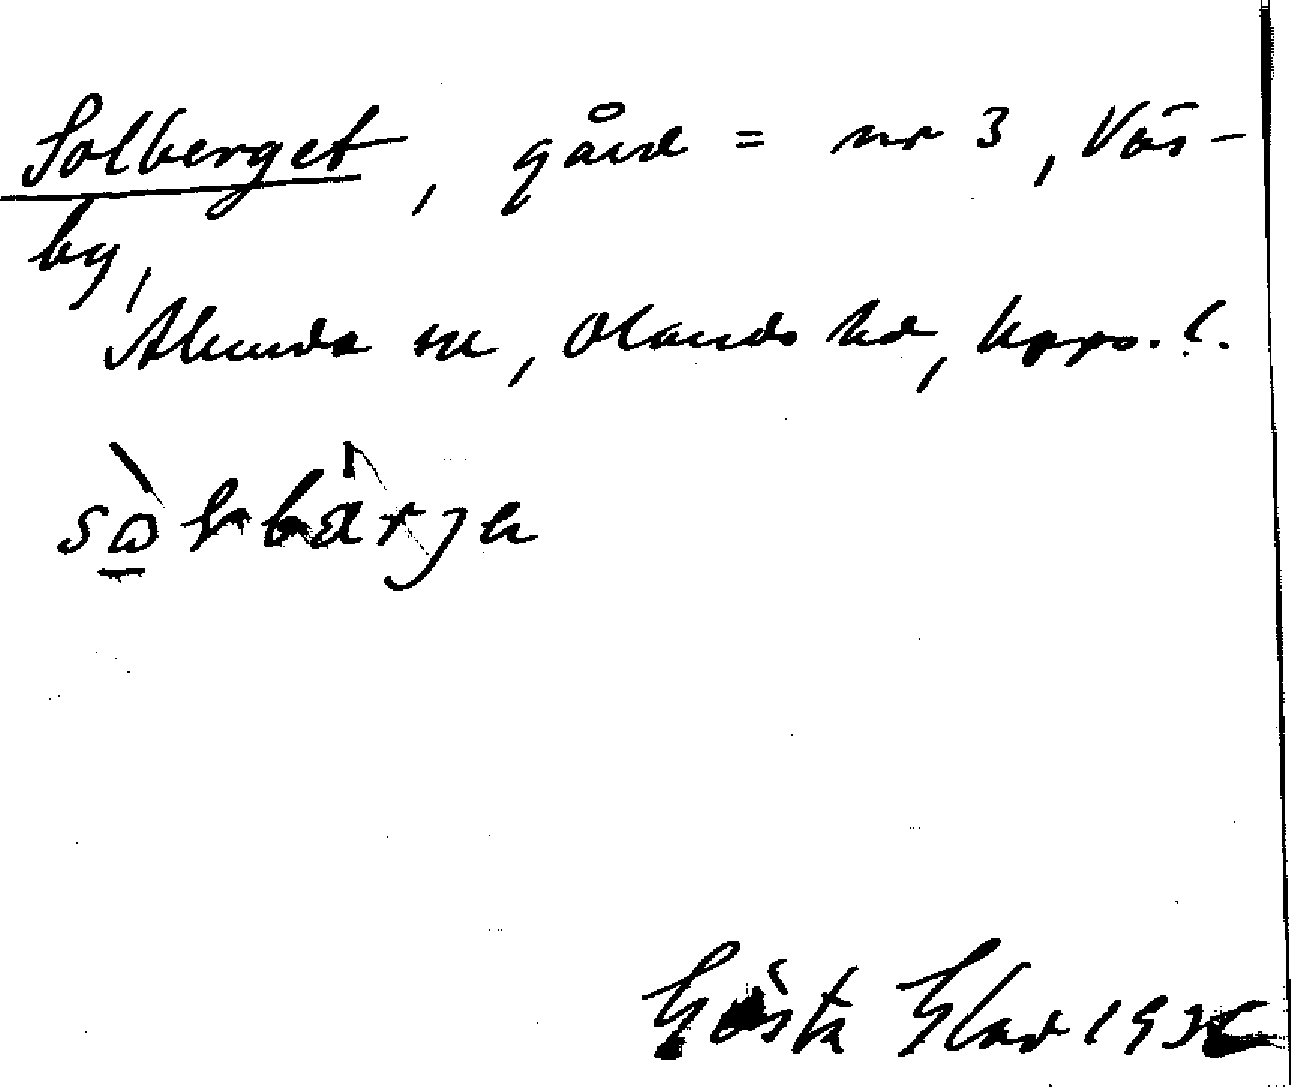 Solberget, gård = nr 3, Väs-
by,
Alunda sn, Olands hd, Upps. l.
sò̱lbärje
Gösta